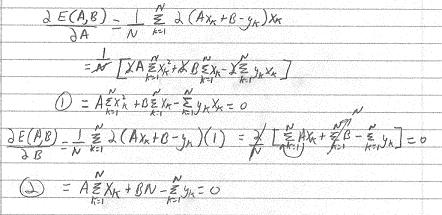 ∂E(A,B)/∂A = 1/N Σ_{k=1}^{N} 2(Ax_k+B-y_k)x_k
= 1/N [2A Σ_{k=1}^{N} x_k^2 + 2B Σ_{k=1}^{N} x_k - 2 Σ_{k=1}^{N} y_k x_k]
① = A Σ_{k=1}^{N} x_k^2 + B Σ_{k=1}^{N} x_k - Σ_{k=1}^{N} y_k x_k = 0
∂E(A,B)/∂B = 1/N Σ_{k=1}^{N} 2(Ax_k+B-y_k)(1) = 2/N [Σ_{k=1}^{N} Ax_k + Σ_{k=1}^{N} B - Σ_{k=1}^{N} y_k] = 0
② = A Σ_{k=1}^{N} x_k + BN - Σ_{k=1}^{N} y_k = 0